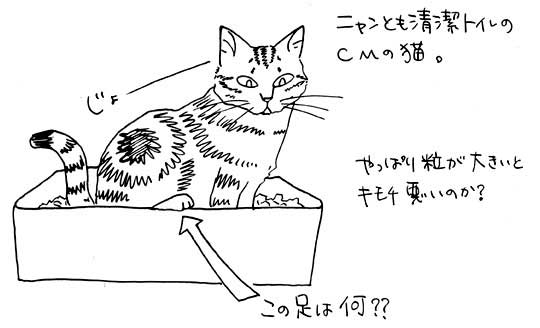 ニャンとも清潔トイレの
CMの猫。
じょ
やっぱり粒が大きいと
キモチ悪いのか?
この足は何??